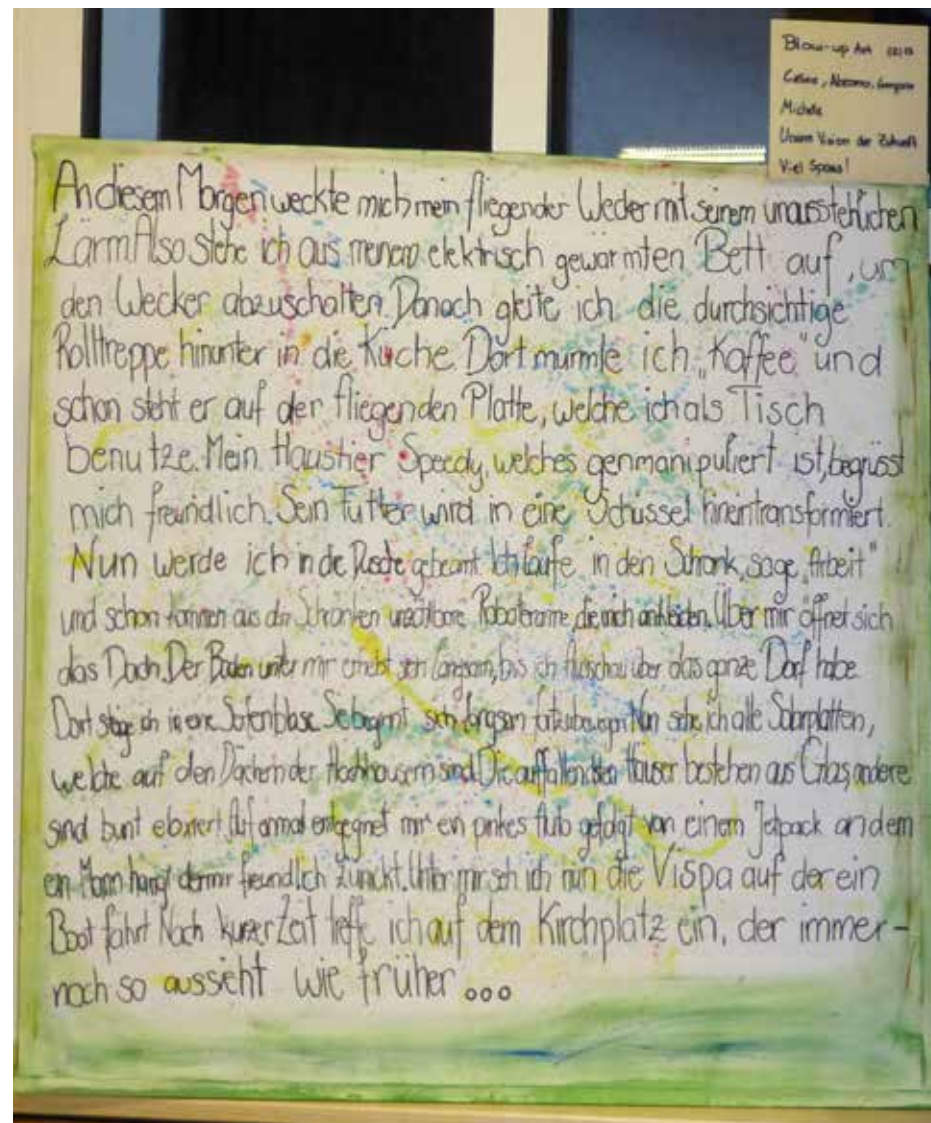 Blow-up Art
Celine,
Michelle
Unsere Vision der Zukunft
Viel Spass!
An diesem Morgen weckte mich mein fliegender Wecker mit seinem unausstehlichen
Lärm Also stehe ich aus meinem elektrisch gewärmten Bett auf, um
den Wecker abzuschalten. Danach gleite ich die durchsichtige
Rolltreppe hinunter in die Küche. Dort murmle ich „Kaffee" und
schon steht er auf der fliegenden Platte, welche ich als Tisch
benutze. Mein Haustier Speedy, welches genmanipuliert ist, begrüsst
mich freundlich. Sein Futter wird in eine Schüssel hineintransformiert.
Nun werde ich in die gebeamt Ich laufe in den Schrank, sage „Arbeit"
und schon kommen aus den Schränken unzählbare Roboterarme, die mich ankleiden. Über mir öffnet sich
das Dach. Der Boden unter mir erhebt sich langsam, bis ich Ausschau über das ganze Dorf habe.
Dort steige ich in eine Seifenblase. Sie beginnt sich langsam fortzubewegen. Nun sehe ich alle Solarplatten,
welche auf den Dächern der Hochhäusern sind. Die auffallendsten Häuser bestehen aus Glas, andere
sind bunt Auf einmal entgegnet mir ein pinkes gefolgt von einem Jetpack an dem
ein Mann hängt der mir freundlich zunickt. Unter mir seh ich nun die Vispa auf der ein
Boot fährt Nach kurzer Zeit treffe ich auf dem Kirchplatz ein, der immer-
noch so aussieht wie früher ...